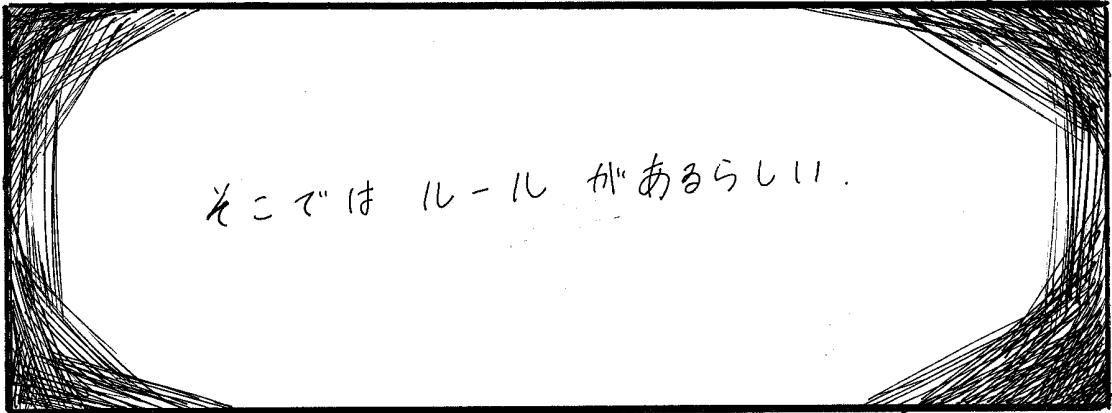 そこでは ルール があるらしい.